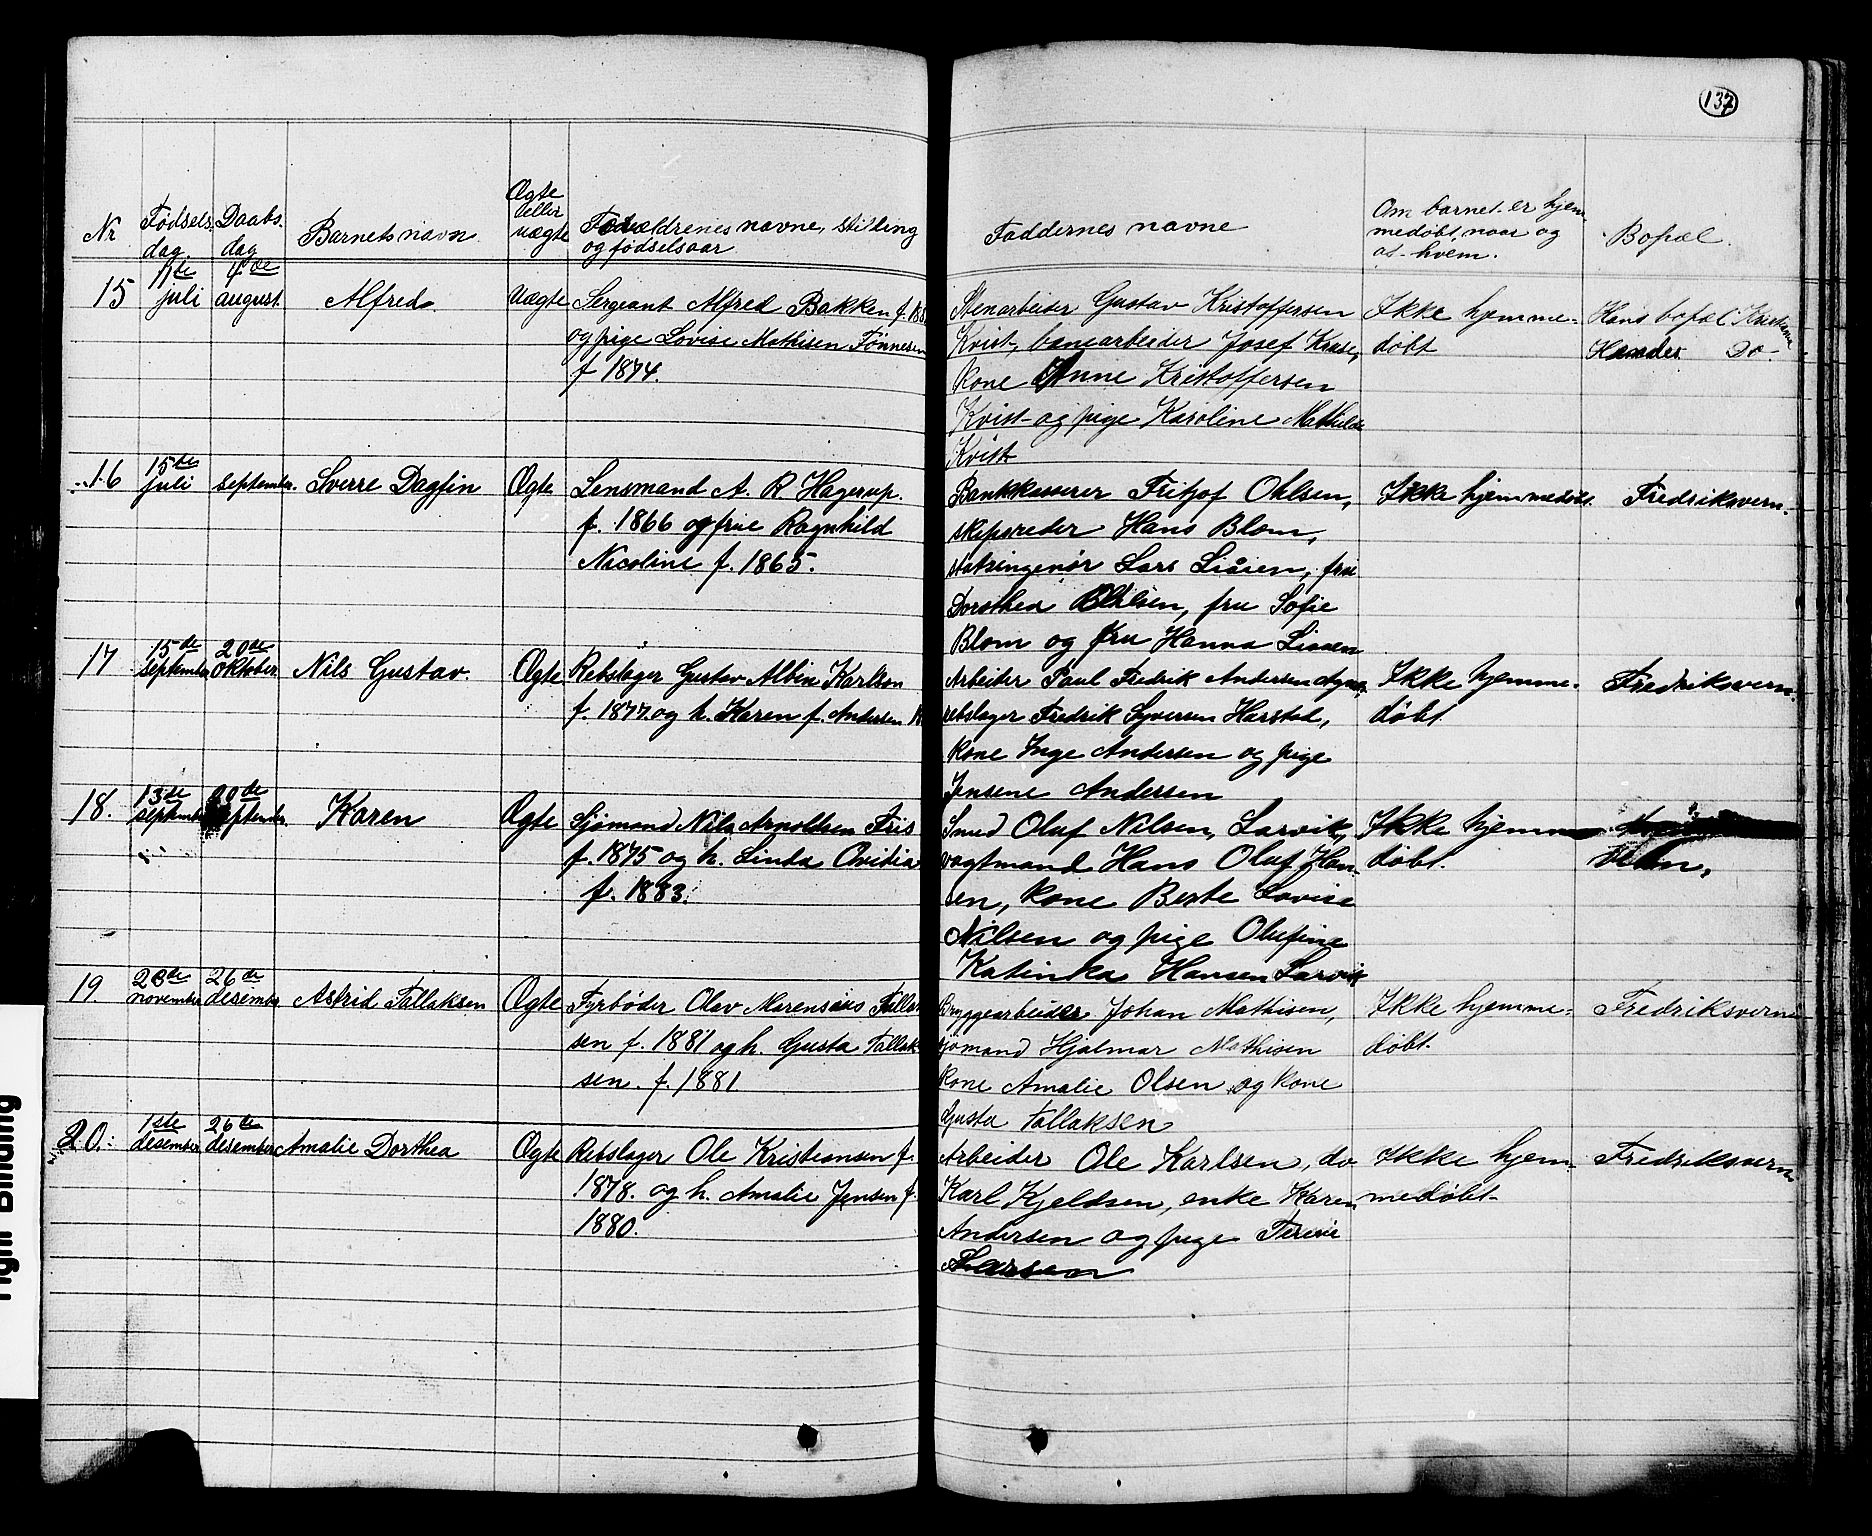 137
Nr Fødsels- Daabs- Barnets navn Ægte Forældrenes navne, stilling Faddernes navne Om barnet er hjem- Bopæl.
dag. dag eller og fødselsaar medøbt, naar og
uægte af hvem.
15 11te juli 4de august. Alfred. Uægte Sergeant Alfred Bakken f.
og pige Lovise Mathisen Tønnesen
f 1874.
Stenarbeider Gustav Kristoffersen
Kvist, banearbeider Josef Kruse,
kone Anne Kristoffersen
Kvist og pige Karoline Mathilde
Kvist
Ikke hjemme-
døbt
Hans bopæl Kristiania
Hendes Do-
16 15de juli september. Sverre Dagfin Ægte Lensmand A. R Hagerup.
f. 1866 og frue Ragnhild
Nicoline f. 1865.
Bankkasserer Fritjof Ohlsen,
skipsreder Hans Blom,
Lars, fru
Dorothea Ohlsen, fru Sofie
Blom og fru Hanna
Ikke hjemmedøbt. Fredriksvern.
17 15de september 20de oktober. Nils Gustav. Ægte Rebslager Gustav Albin Karlson
f. 1877 og h. Karen f. Andersen
Arbeider Paul Fredrik Andersen Agnes,
rebslager Fredrik Syversen Harstad,
kone Inge Andersen og pige
Jensene Andersen
Ikke hjemme-
døbt.
Fredriksvern.
18. 13de september september. Karen Ægte Sjømand Nils Arnoldsen Friis
f. 1875 og h. Linda Ovidia
f. 1883.
Smed Oluf Nilsen, Larvik,
vagtmand Hans Oluf Han-
sen, kone Berte Lovise
Nilsen og pige Olufine
Katinka Hansen Larvik
Ikke hjemme
døbt.
19 23de november 26de desember Astrid Tallaksen Ægte Fyrbøder Olav Marensius Tallak
sen f. 1881 og h. Gusta Tallak
sen. f. 1881
Bryggearbeider Johan Mathisen,
sjømand Hjalmar Mathisen
kone Amalie Olsen og kone
Gusta Tallaksen
Ikke hjemme-
døbt.
Fredriksvern
20. 1ste desember 26de desember Amalie Dorthea Ægte Rebslager Ole Kristiansen f.
1878. og h. Amalie Jensen f.
1880.
Arbeider Ole Karlsen, do
Karl Kjeldsen, enke Karen
Andersen og pige Terese
Larsen
Ikke hjem-
medøbt-
Fredriksvern